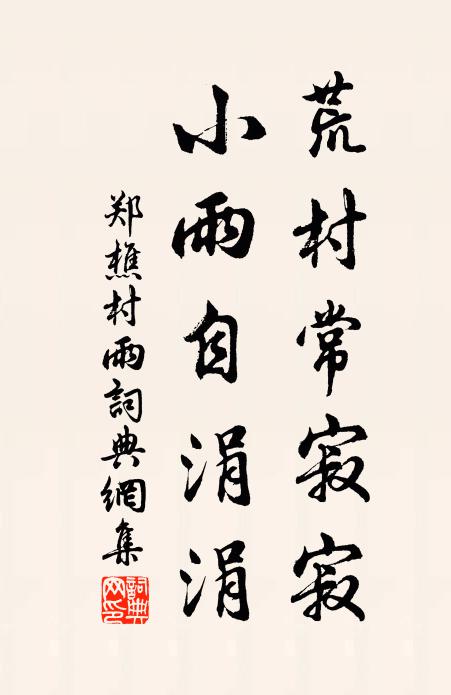 荒村常寂寂
小雨自涓涓
郑樵村雨詞典網集
詞典
网印